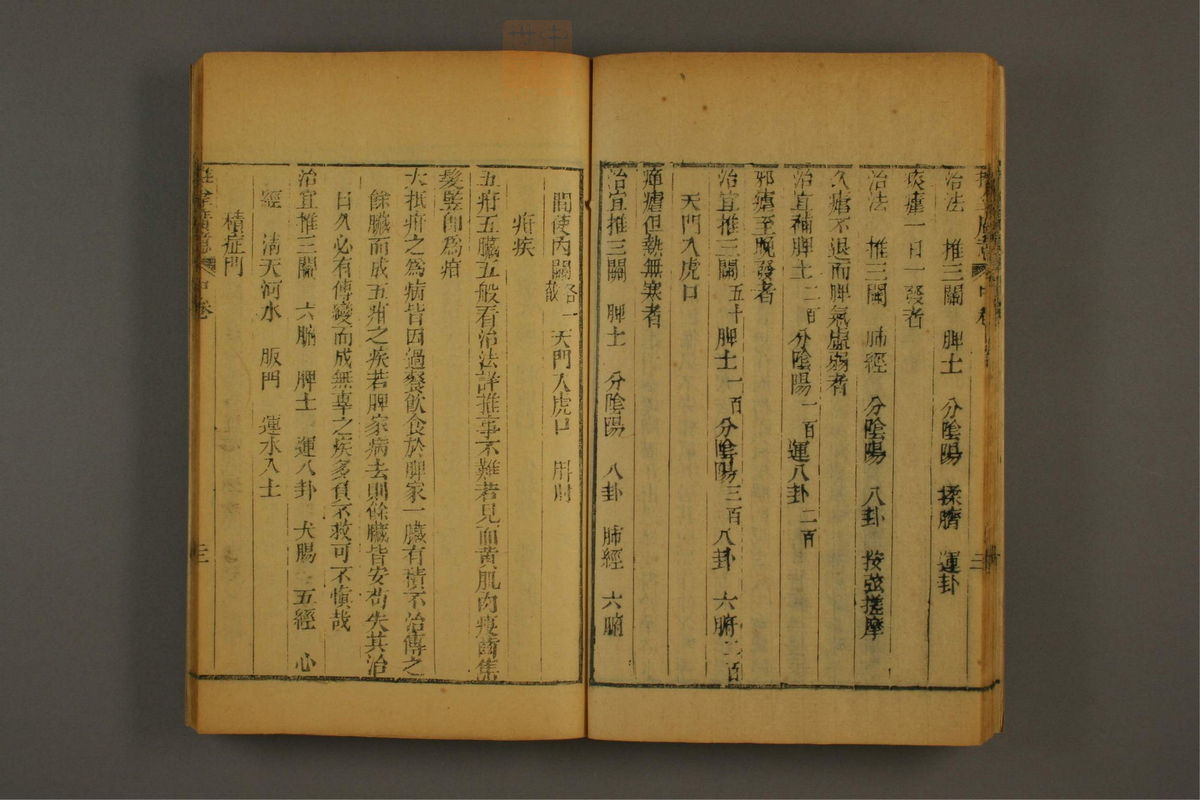 治法　推三關　脾土　分陰陽　揉臍　運卦
痰瘧一日一發者
治法　推三關　肺經　分陰陽　八卦　按弦搓摩
久瘧不退而脾氣虛弱者
治宜補脾土二百分陰陽一百運八卦二百
邪瘧至晚發者
治宜推三關五十脾土一百分陰陽三百八卦　六腑二百
天門入虎口
癉瘧但熱無寒者
治宜推三關　脾土　分陰陽　八卦　肺經　六腑
間使內關各一截　天門入虎口　㪷肘
疳疾
五疳五臟五般看治法詳推事不難若見面黃肌肉瘦齒焦
髮豎即為疳
大抵疳之為病皆因過餐飲食於脾家一臟有積不治傳之
餘臟而成五疳之疾若脾家病去則餘臟皆安茍失其治
日久必有傳變而成無辜之疾多負不救可不慎哉
治宜推三關　六腑　脾土　運八卦　大腸　五經　心
經　清天河水　版門　運水入土
積症門
中卷